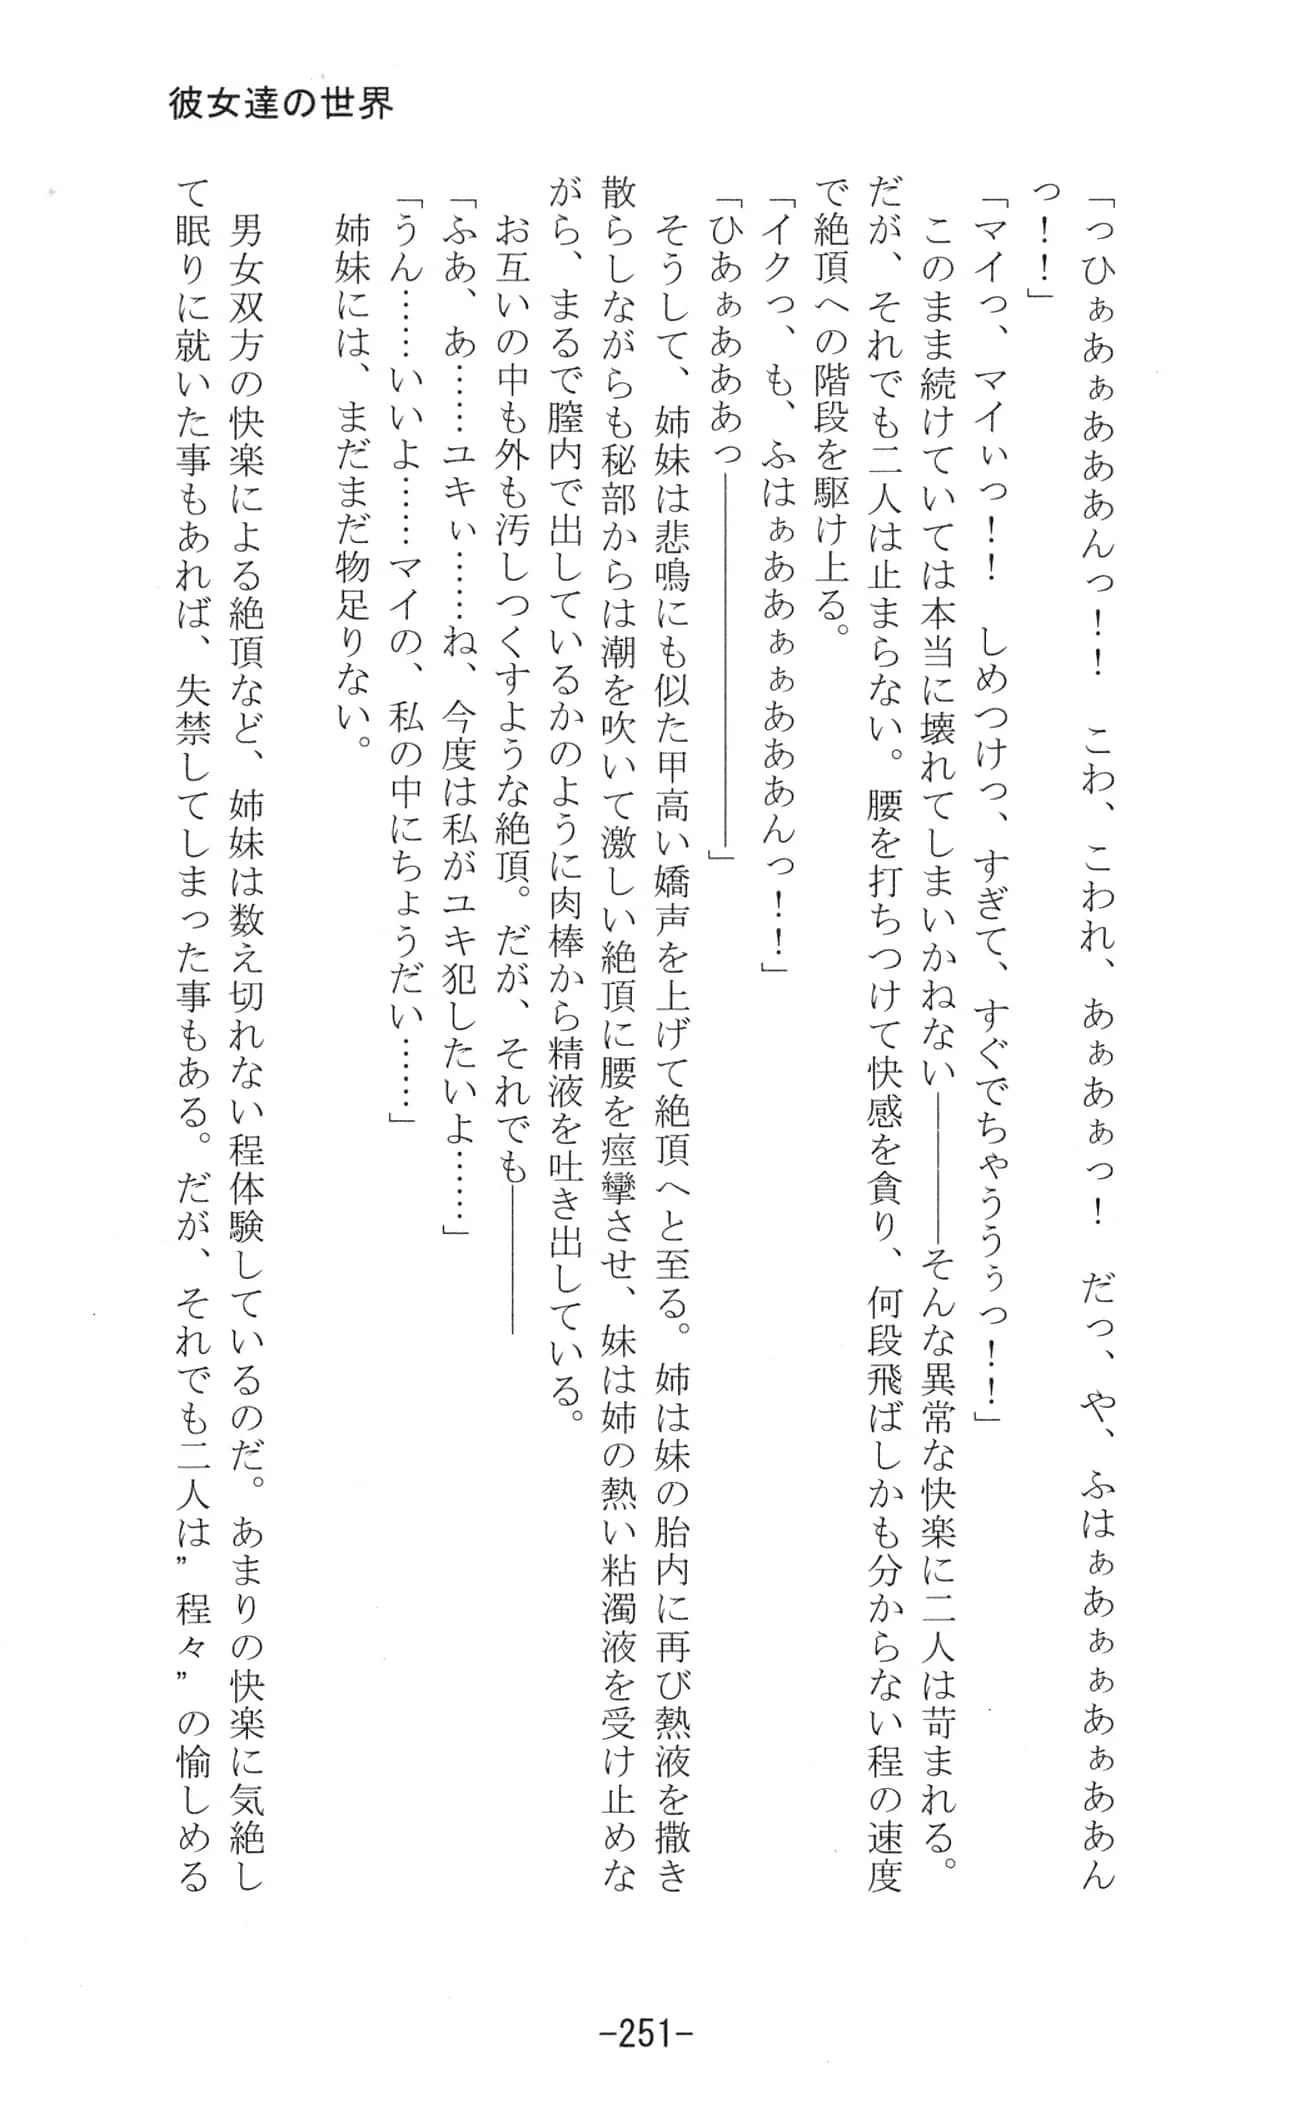 彼女達の世界
「っひぁあぁあああんっ！！　こわ、こわれ、あぁあぁっ！　だっ、や、ふはぁあぁぁあぁああん
っ！！」
「マイっ、マイぃっ！！　しめつけっ、すぎて、すぐでちゃううぅっ！！」
　このまま続けていては本当に壊れてしまいかねない――――そんな異常な快楽に二人は苛まれる。
だが、それでも二人は止まらない。腰を打ちつけて快感を貪り、何段飛ばしかも分からない程の速度
で絶頂への階段を駆け上る。
「イクっ、も、ふはぁああぁぁあああんっ！！」
「ひあぁあああっ――――――――――」
　そうして、姉妹は悲鳴にも似た甲高い嬌声を上げて絶頂へと至る。姉は妹の胎内に再び熱液を撒き
散らしながらも秘部からは潮を吹いて激しい絶頂に腰を痙攣させ、妹は姉の熱い粘濁液を受け止めな
がら、まるで膣内で出しているかのように肉棒から精液を吐き出している。
　お互いの中も外も汚しつくすような絶頂。だが、それでも――――
「ふあ、あ……ユキぃ……ね、今度は私がユキ犯したいよ……」
「うん……いいよ……マイの、私の中にちょうだい……」
　姉妹には、まだまだ物足りない。
　男女双方の快楽による絶頂など、姉妹は数え切れない程体験しているのだ。あまりの快楽に気絶し
て眠りに就いた事もあれば、失禁してしまった事もある。だが、それでも二人は”程々”の愉しめる
-251-